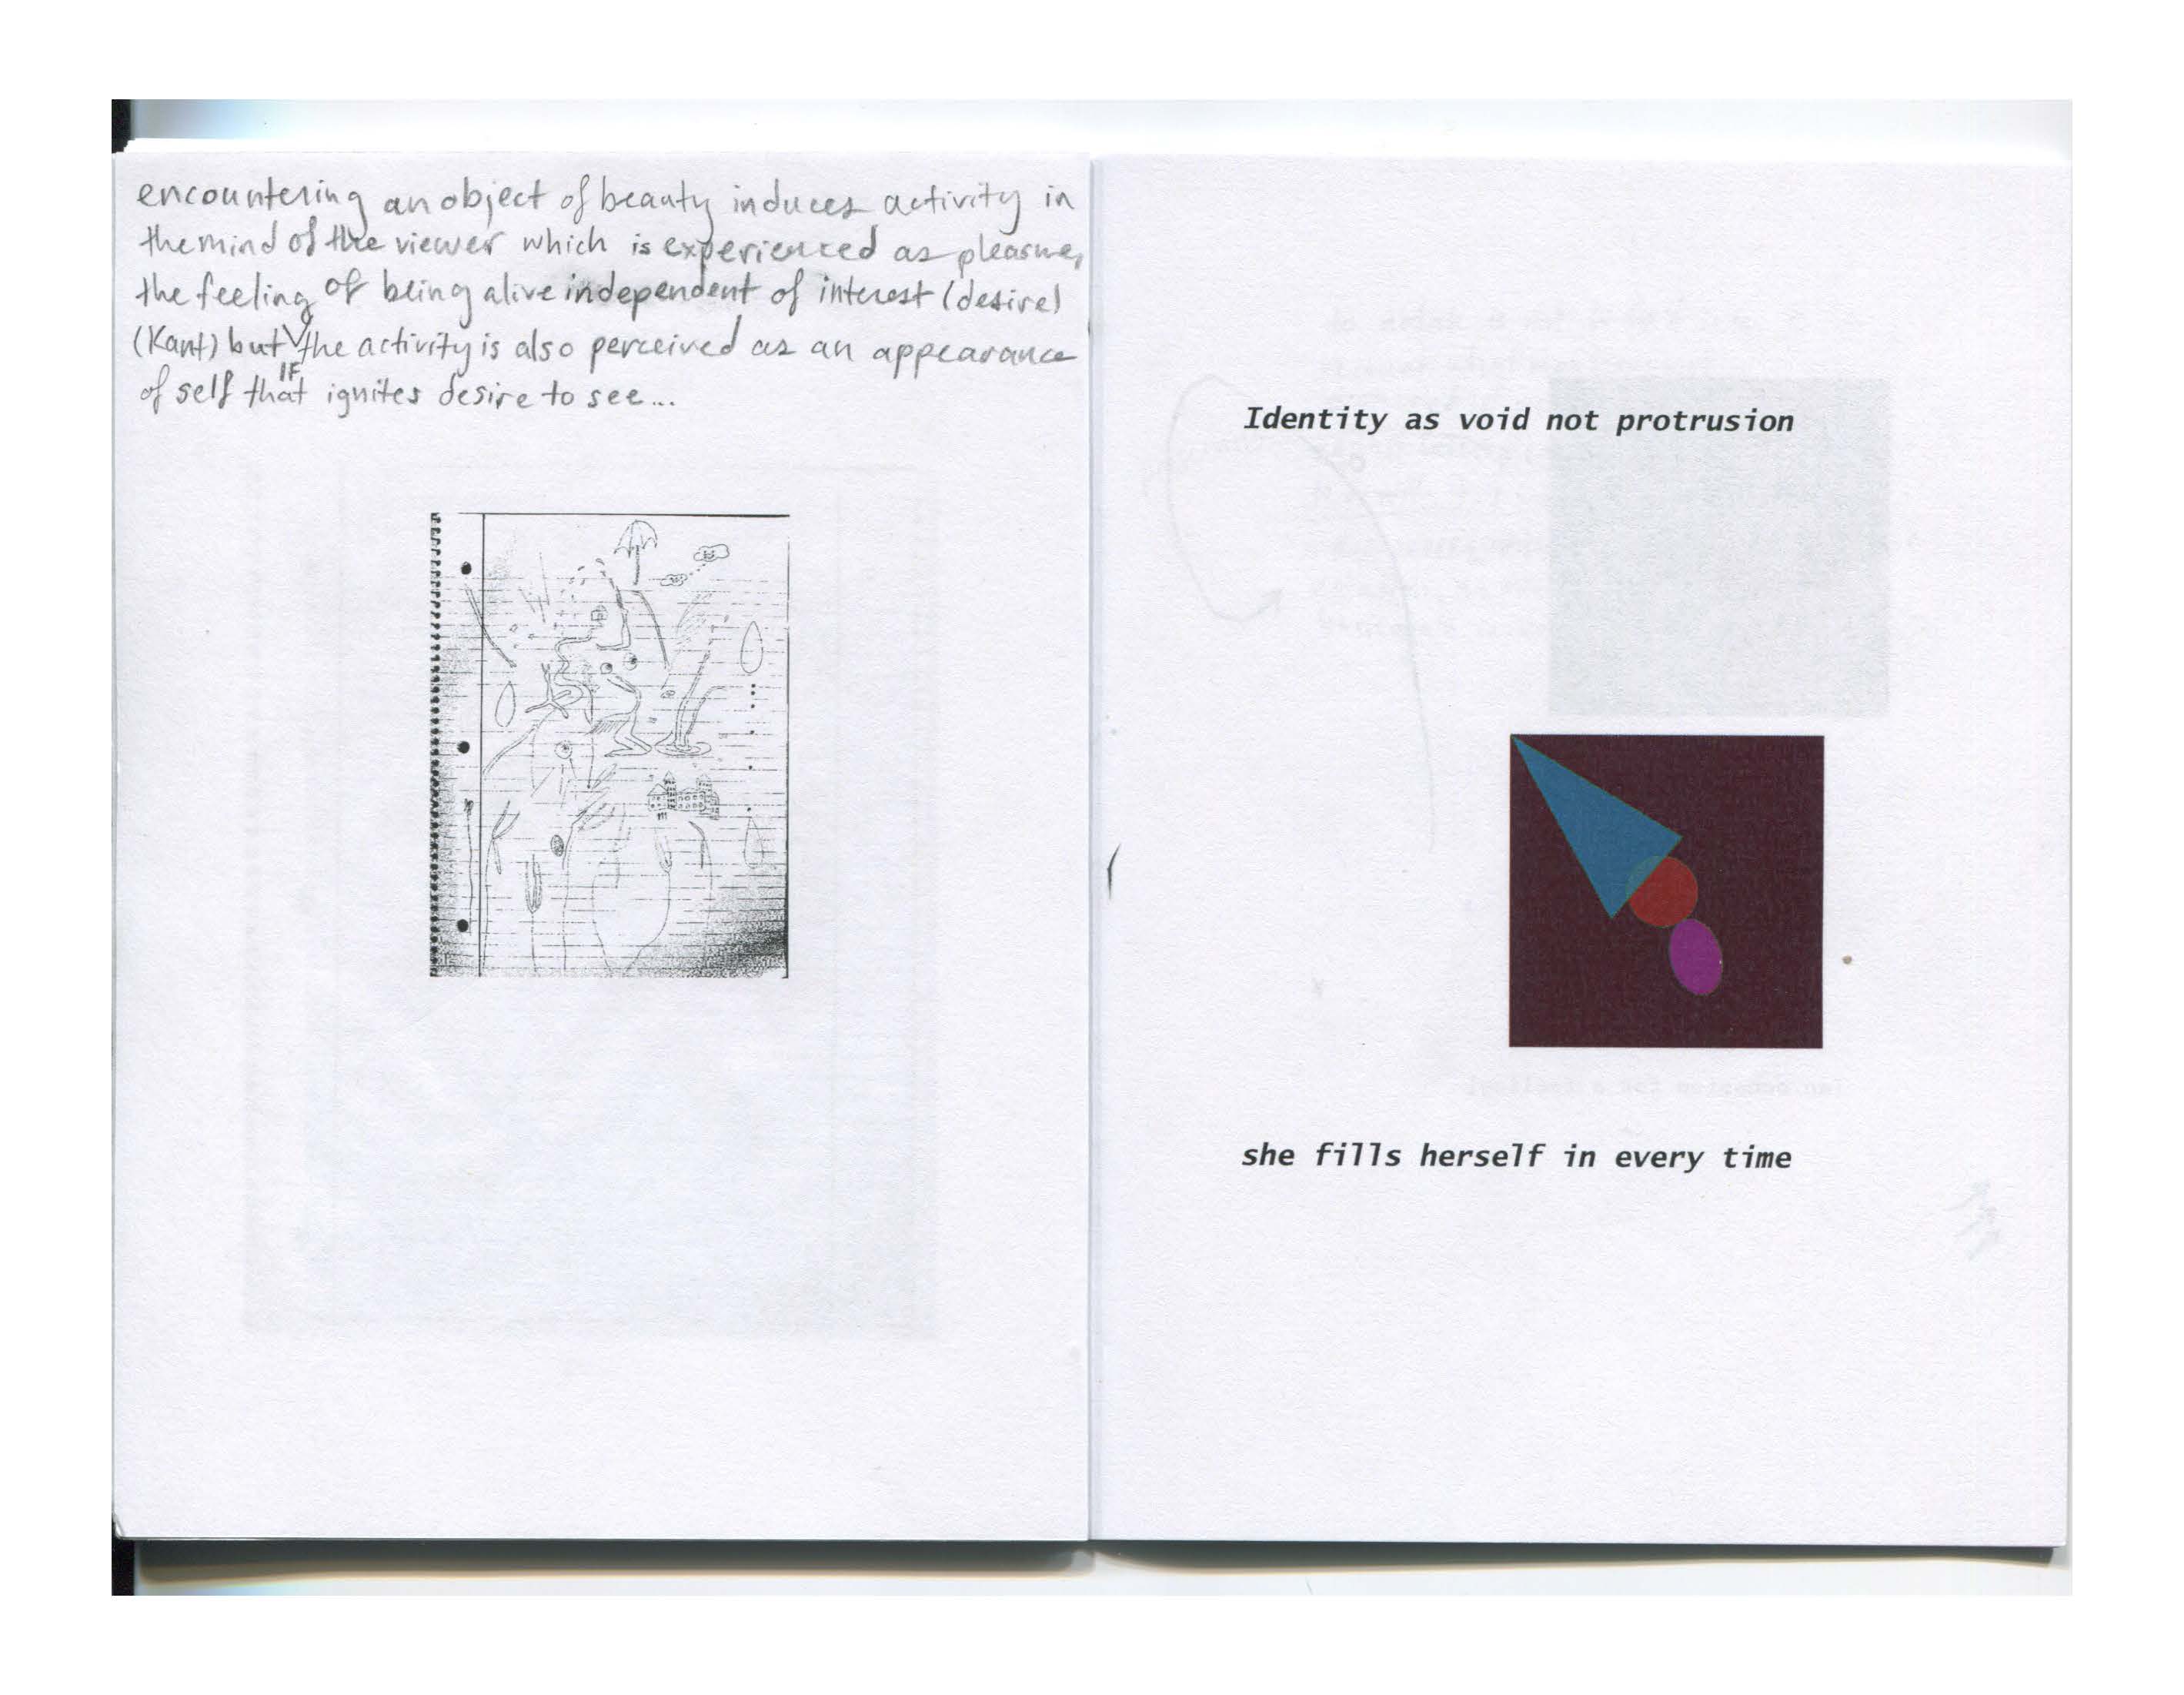 encountering an object of beauty induces activity in
the mind of the viewer which is experienced as pleasure,
the feeling of being alive independent of interest (desire)
(Kant) but IF the activity is also perceived as an appearance
of self that ignites desire to see...
Identity as void not protrusion
she fills herself in every time